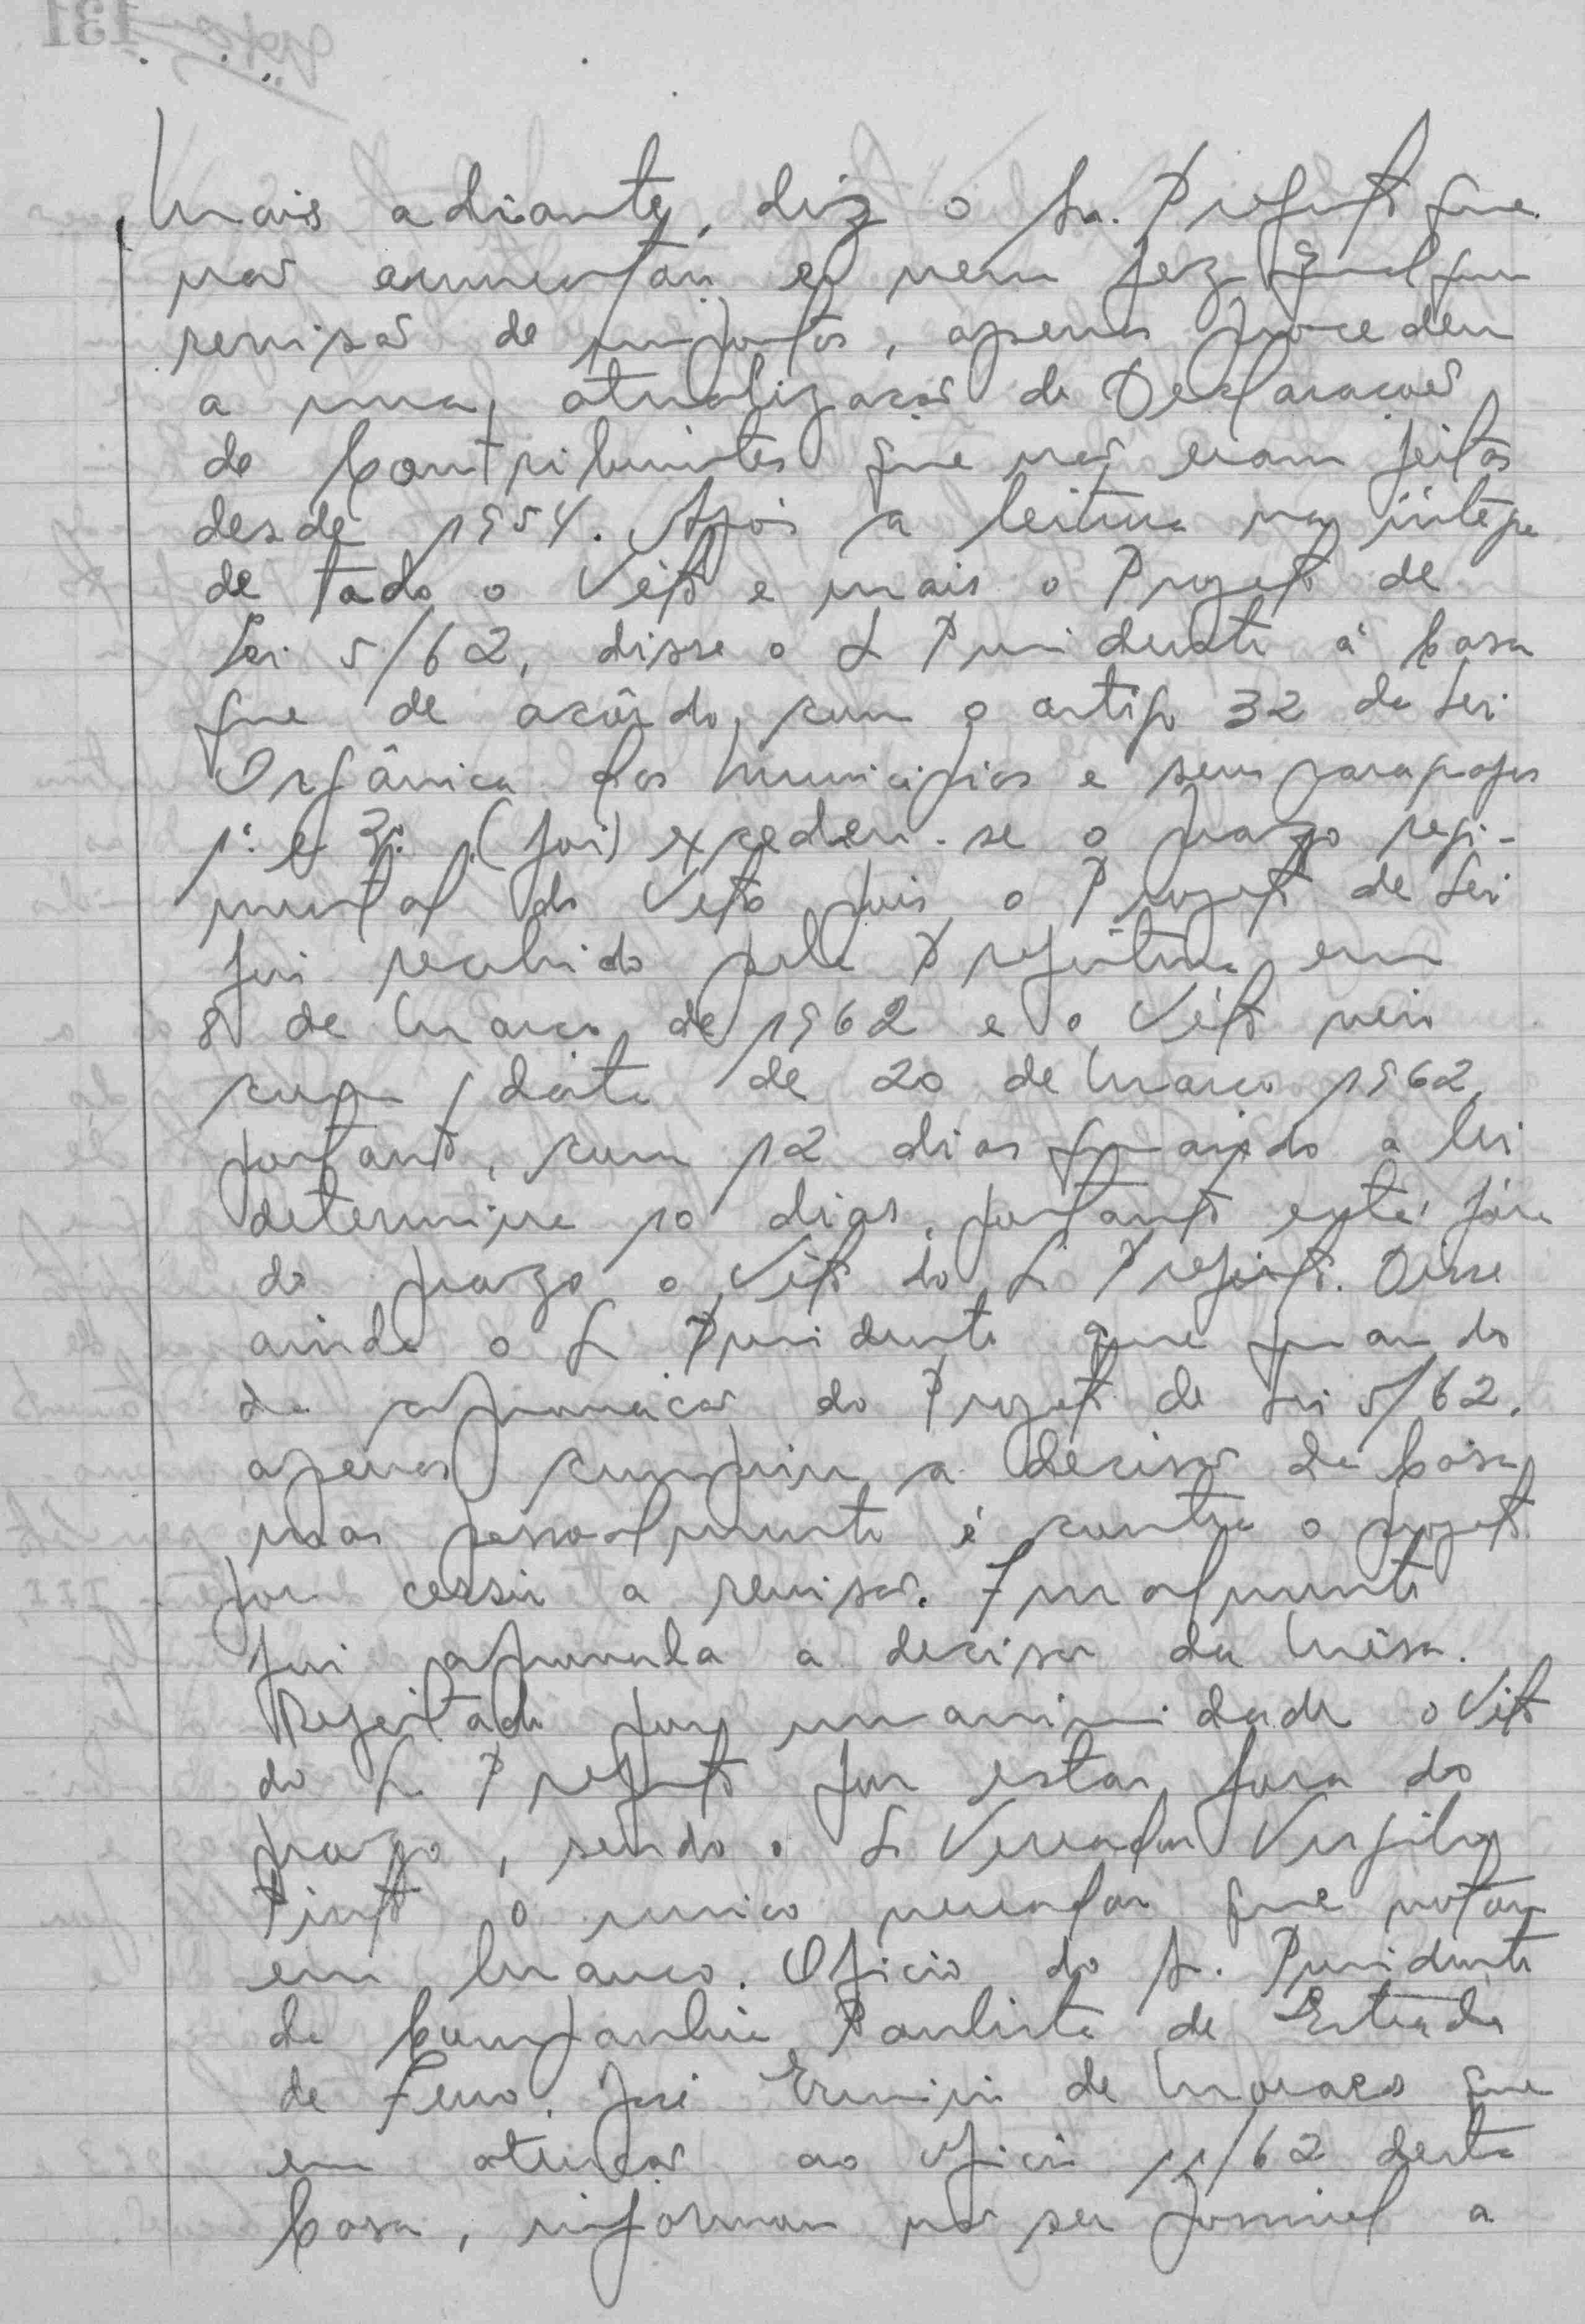 Mais adiante, diz o Sr. Prefeito que
não aumentou e nem fez qualquer
revisão de impostos, apenas procedeu
a uma atualização de Declarações
de Contribuintes que não eram feitas
desde 1954. Após a leitura na íntegra
de todo o Véto e mais o Projeto de
Lei 5/62, disse o Sr Presidente á Casa
que de acôrdo com o artigo 32 da Lei
Orgânica dos Municipios e seus paragrafos
1º e 3º (foi) excedeu-se o prazo regi-
mental do Veto pois o Projeto de Lei
foi recebido pela Prefeitura em
8 de Março de 1962 e o Véto veio
com data de 20 de Março 1962,
portanto, com 12 dias quando a lei
determina 10 dias, portanto está fóra
do prazo o Véto do Sr Prefeito. Disse
ainda o Sr Presidente que quando
da aprovação do Projeto de Lei 5/62,
apenas cumpriu a decisão da Casa,
mas pessoalmente é contra o projeto
por a revisão. Finalmente
foi aprovada a decisão da Mêsa.
Rejeitado por unanimidade o Véto
do Sr. Prefeito por estar fora do
prazo, sendo o Sr Vereador Virgilio
Pinto o unico vereador que votou
em branco. Oficio do Sr. Presidente
da Companhia Paulista de Estrada
de Ferro, José Ermirio de Moraes que
em atenção ao oficio 11/62 desta
Casa, informou não ser possivel a